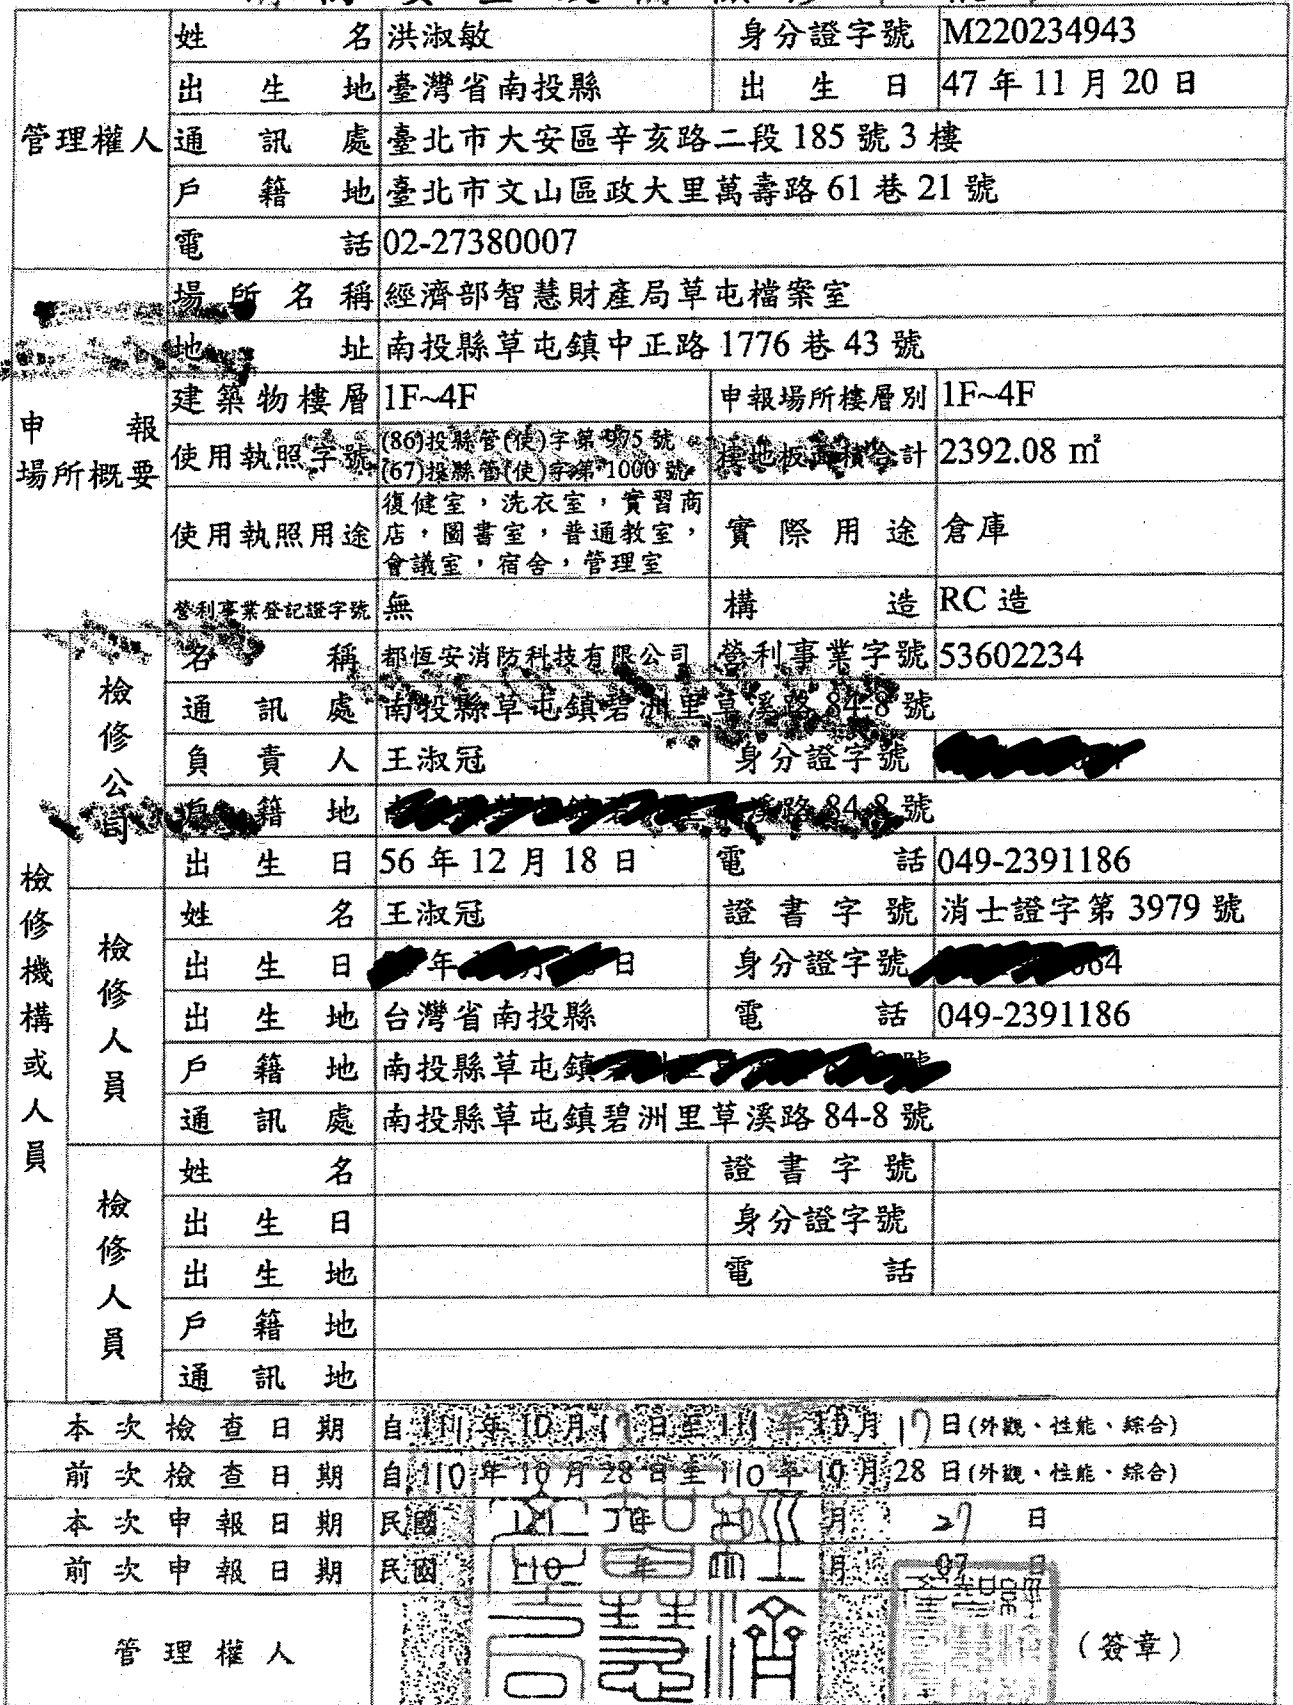 管理權人
姓名 洪淑敏 身分證字號 M220234943
出生地 臺灣省南投縣 出生日 47年11月20日
通訊處 臺北市大安區辛亥路二段185號3樓
戶籍地 臺北市文山區政大里萬壽路61巷21號
電話 02-27380007
申報場所概要
場所名稱 經濟部智慧財產局草屯檔案室
地址 南投縣草屯鎮中正路1776巷43號
建築物樓層 1F~4F 申報場所樓層別 1F~4F
使用執照字號 (86)投縣管(使)字第975號 樓地板面積合計 2392.08 ㎡
(67)投縣管(使)字第1000號
使用執照用途 復健室，洗衣室，實習商 實際用途 倉庫
店，圖書室，普通教室，
會議室，宿舍，管理室
營利事業登記證字號 無 構造 RC造
檢修機構或人員
檢修公司
名稱 都恆安消防科技有限公司 營利事業字號 53602234
通訊處 南投縣草屯鎮碧洲里草溪路84-8號
負責人 王淑冠 身分證字號
戶籍地 溪路84-8號
出生日 56年12月18日 電話 049-2391186
檢修人員
姓名 王淑冠 證書字號 消士證字第3979號
出生日 年 月 日 身分證字號
出生地 台灣省南投縣 電話 049-2391186
戶籍地 南投縣草屯鎮 號
通訊處 南投縣草屯鎮碧洲里草溪路84-8號
檢修人員
姓名 證書字號
出生日 身分證字號
出生地 電話
戶籍地
通訊地
本次檢查日期 自111年10月17日至111年10月17日(外觀、性能、綜合)
前次檢查日期 自110年10月28日至110年10月28日(外觀、性能、綜合)
本次申報日期 民國 年 月 27日
前次申報日期 民國110年 月07日
管理權人 (簽章)